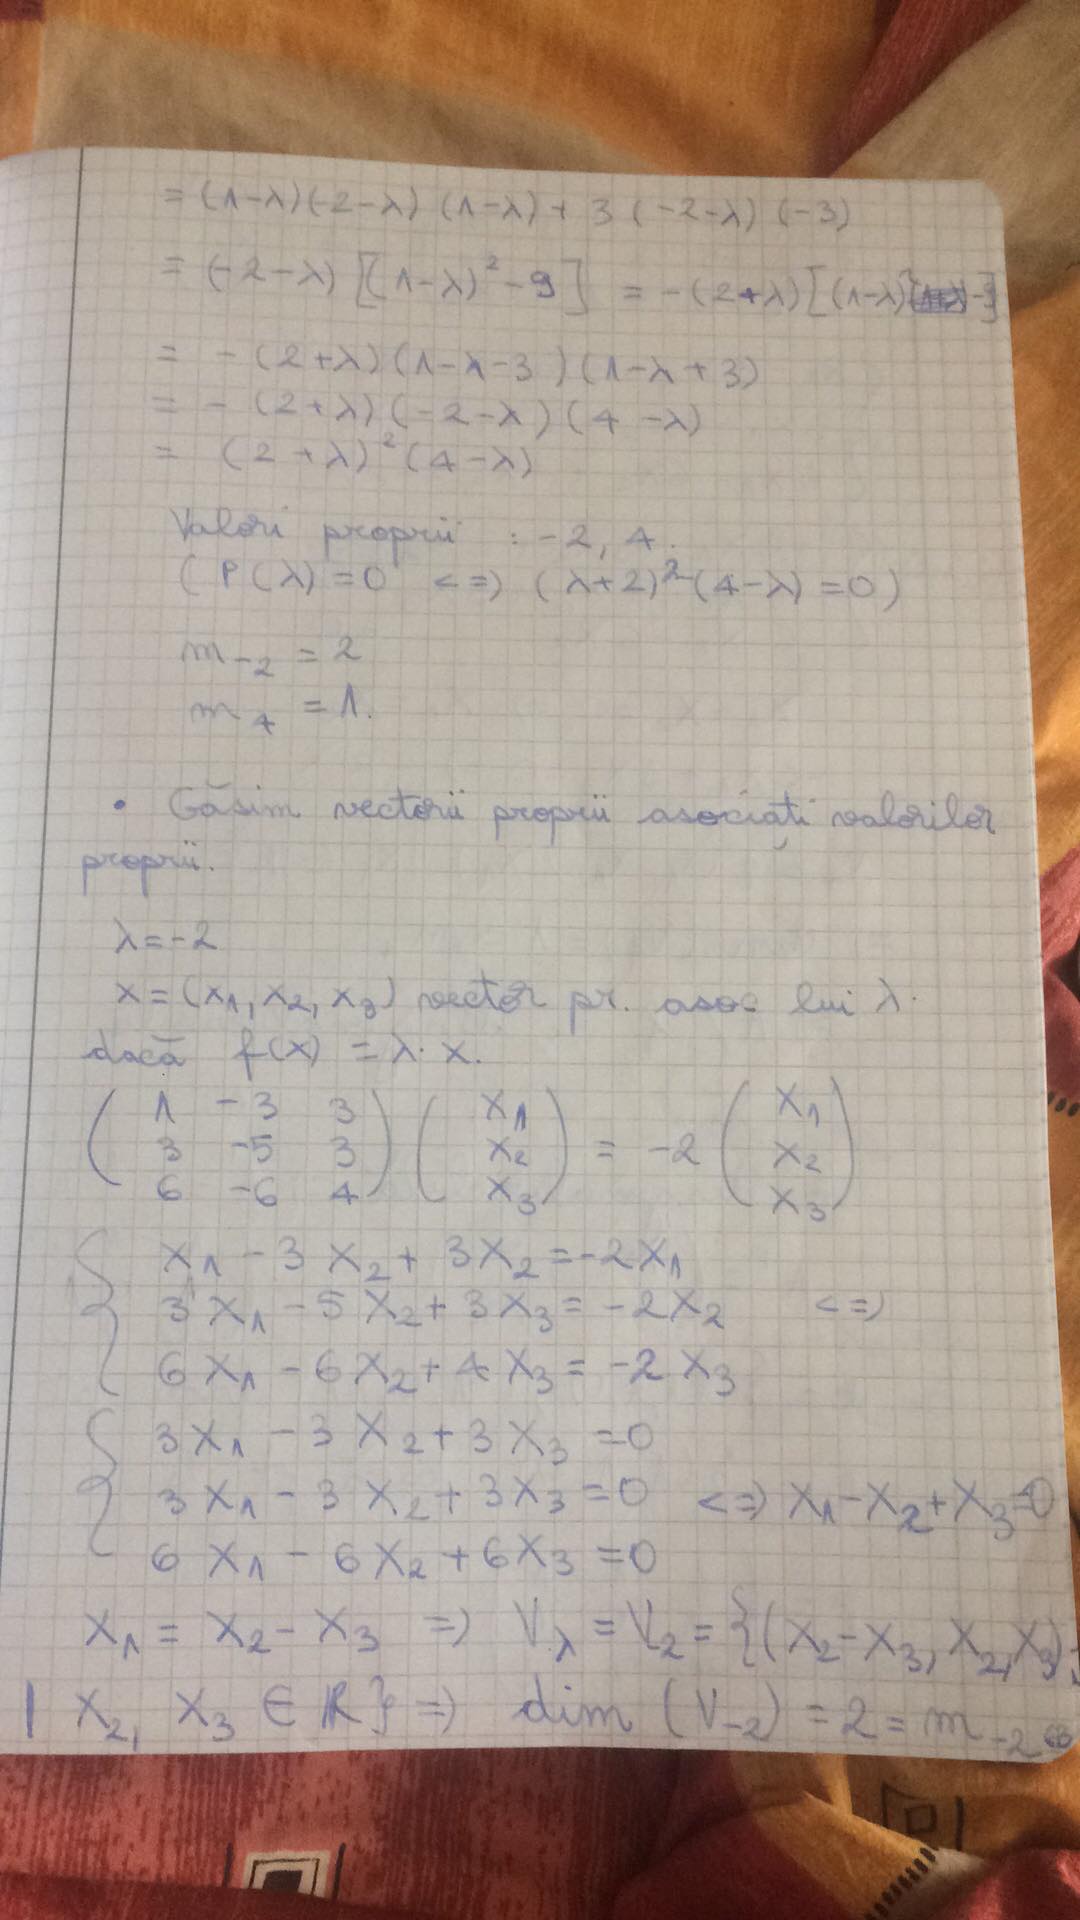 = (1-λ)(-2-λ) (1-λ) + 3 (-2-λ) (-3)
= (-2-λ) [(1-λ)² - 9] = -(2+λ) [(1-λ)² -9]
= - (2+λ) (1-λ-3) (1-λ+3)
= - (2+λ) (-2-λ) (4-λ)
= (2+λ)² (4-λ)
Valori proprii : -2, 4.
( P(λ) = 0 <=> (λ+2)² (4-λ) = 0 )
m₋₂ = 2
m₄ = 1.
• Găsim vectorii proprii asociați valorilor
proprii.
λ = -2
x = (x₁, x₂, x₃) vector pr. asoc lui λ.
dacă f(x) = λ· x.
( 1 -3 3 ) ( x₁ ) ( x₁ )
( 3 -5 3 ) ( x₂ ) = -2 ( x₂ )
( 6 -6 4 ) ( x₃ ) ( x₃ )
{ x₁ - 3 x₂ + 3x₂ = -2x₁
3 x₁ - 5 x₂ + 3x₃ = -2x₂ <=>
6 x₁ - 6x₂ + 4 x₃ = -2 x₃
{ 3x₁ - 3 x₂ + 3 x₃ = 0
3 x₁ - 3 x₂ + 3x₃ = 0 <=> x₁ - x₂ + x₃ = 0
6 x₁ - 6x₂ + 6x₃ = 0
x₁ = x₂ - x₃ => V_λ = V₂ = {(x₂ - x₃, x₂, x₃);
| x₂, x₃ ∈ ℝ} => dim (V₋₂) = 2 = m₋₂